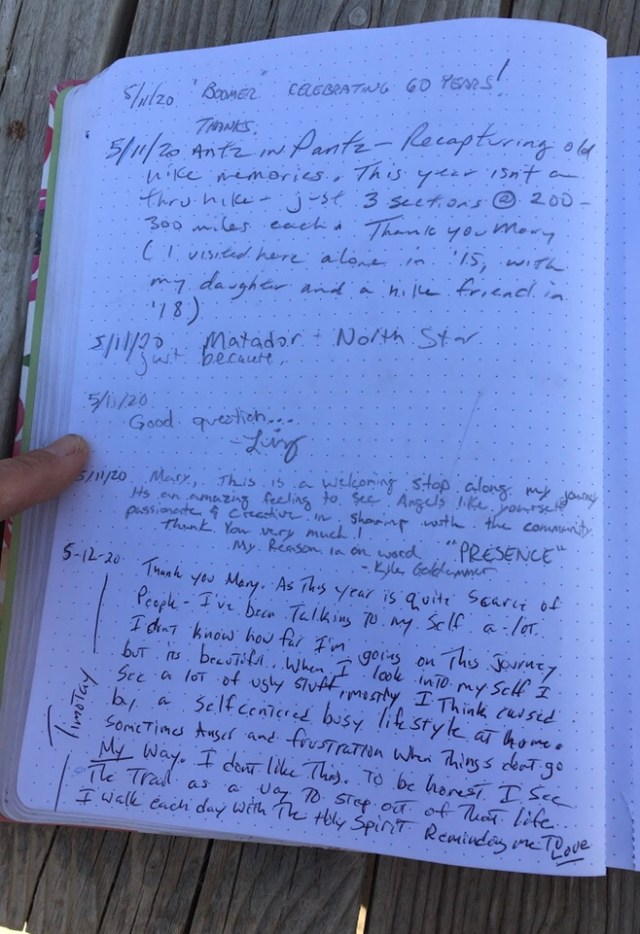 5/11/20 "BOOMER" CELEBRATING 60 YEARS!
THANKS.
5/11/20 Antz in Pantz - Recapturing old
hike memories. This year isn't a
thru hike - just 3 sections @ 200-
300 miles each. Thank you Mary
(I visited here alone in '15, with
my daughter and a hike friend in
'18)
5/11/20 Matador + North Star
just because.
5/11/20
Good question...
5/11/20 Mary, This is a welcoming stop along my journey
Its an amazing feeling to see Angels like yourself
passionate & creative in sharing with the community.
Thank You very much!
My Reason in on word "PRESENCE"
- Kyle
5-12-20 Thank you Mary. As This year is quite scarce of
People - I've been Talking To my self a lot.
I dont know how far I'm going on This Journey
but its beautiful. When I look inTo my self I
see a lot of ugly stuff, mostly I Think caused
by a selfcentered busy lifestyle at home.
Sometimes Anger and frustration when Things dont go
My Way. I dont like This. To be honest I see
The Trail as a way To step out of That life.
I walk each day with The Holy Spirit Reminding me To Love
Timothy